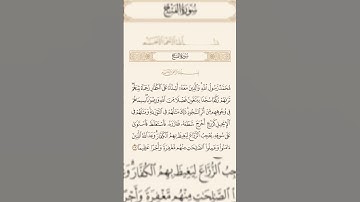 سُورَةُ الفَتْحِ
سُورَةُ الفَتْحِ
مُّحَمَّدٌ رَّسُولُ اللَّهِ وَالَّذِينَ مَعَهُ أَشِدَّاءُ عَلَى الْكُفَّارِ رُحَمَاءُ بَيْنَهُمْ
تَرَاهُمْ رُكَّعًا سُجَّدًا يَبْتَغُونَ فَضْلًا مِّنَ اللَّهِ وَرِضْوَانًا سِيمَاهُمْ
فِي وُجُوهِهِم مِّنْ أَثَرِ السُّجُودِ ذَٰلِكَ مَثَلُهُمْ فِي التَّوْرَاةِ وَمَثَلُهُمْ فِي
الْإِنجِيلِ كَزَرْعٍ أَخْرَجَ شَطْأَهُ فَآزَرَهُ فَاسْتَغْلَظَ فَاسْتَوَىٰ
عَلَىٰ سُوقِهِ يُعْجِبُ الزُّرَّاعَ لِيَغِيظَ بِهِمُ الْكُفَّارَ وَعَدَ اللَّهُ الَّذِينَ
آمَنُوا وَعَمِلُوا الصَّالِحَاتِ مِنْهُم مَّغْفِرَةً وَأَجْرًا عَظِيمًا
جِبُ الزُّرَّاعَ لِيَغِيظَ بِهِمُ الْكُفَّارَ وَعَ
الصَّالِحَاتِ مِنْهُم مَّغْفِرَةً وَأَجْرًا